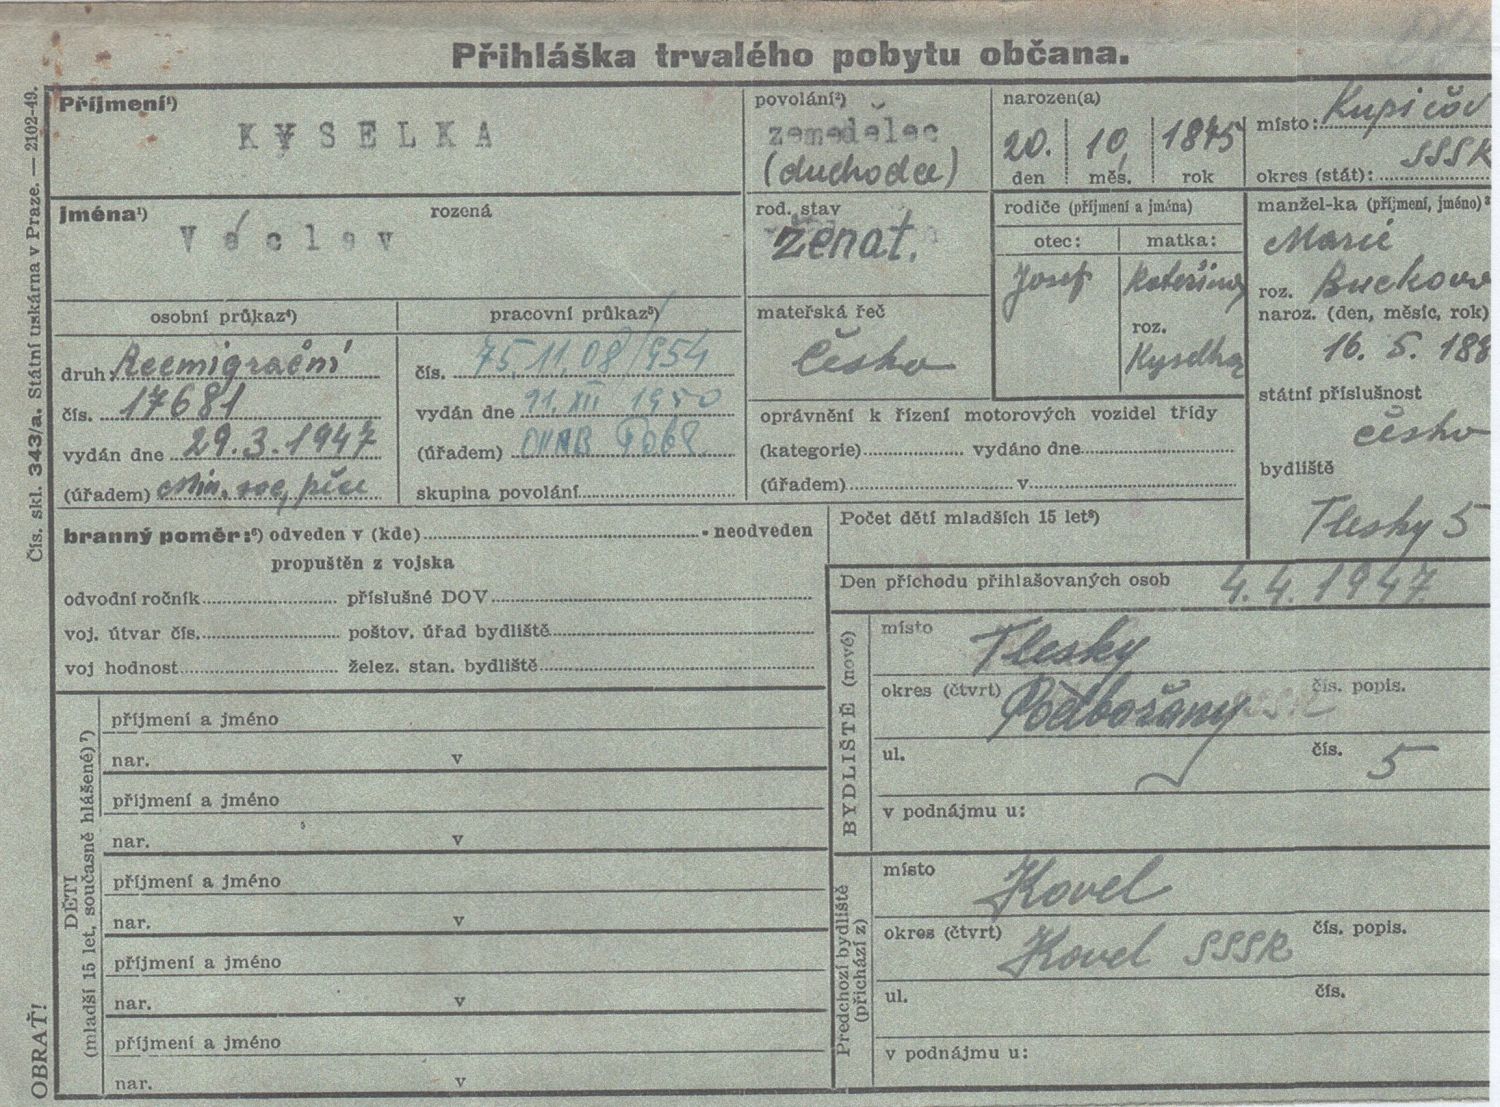 Přihláška trvalého pobytu občana.
Čís. skl. 343/a. Státní tiskárna v Praze. — 2102-49.
OBRAŤ!
Příjmení¹)
KYSELKA
jména¹) rozená
Václav
povolání²)
zemědělec
(duchodce)
narozen(a)
20. 10 1875
den měs. rok
místo: Kupičov
okres (stát): SSSR
rod. stav
ženat.
rodiče (příjmení a jména)
otec: matka:
Josef Kateřina
roz.
Kyselka
manžel-ka (příjmení, jméno)³
Marie
roz. Buckova
naroz. (den, měsíc, rok)
16. 5. 188
státní příslušnost
česko
bydliště
Tlesky 5
mateřská řeč
česko
osobní průkaz⁴)
druh Reemigrační
čís. 17681
vydán dne 29.3.1947
(úřadem) Min. soc. péče
pracovní průkaz⁵)
čís. 75,11,08/954
vydán dne 21. XII 1950
(úřadem)
skupina povolání
oprávnění k řízení motorových vozidel třídy
(kategorie) vydáno dne
(úřadem) v
branný poměr:⁶) odveden v (kde) - neodveden
propuštěn z vojska
odvodní ročník příslušné DOV
voj. útvar čís. poštov. úřad bydliště
voj hodnost želez. stan. bydliště
Počet dětí mladších 15 let⁸)
Den příchodu přihlašovaných osob 4.4.1947
BYDLIŠTĚ (nové)
místo Tlesky
okres (čtvrt) Podbořany SSSR čís. popis.
ul. čís. 5
v podnájmu u:
Predchozí bydliště
(přichází z)
místo Kovel
okres (čtvrt) Kovel SSSR čís. popis.
ul. čís.
v podnájmu u:
DĚTI
(mladší 15 let, současně hlášené)⁷)
příjmení a jméno
nar. v
příjmení a jméno
nar. v
příjmení a jméno
nar. v
příjmení a jméno
nar. v
příjmení a jméno
nar. v